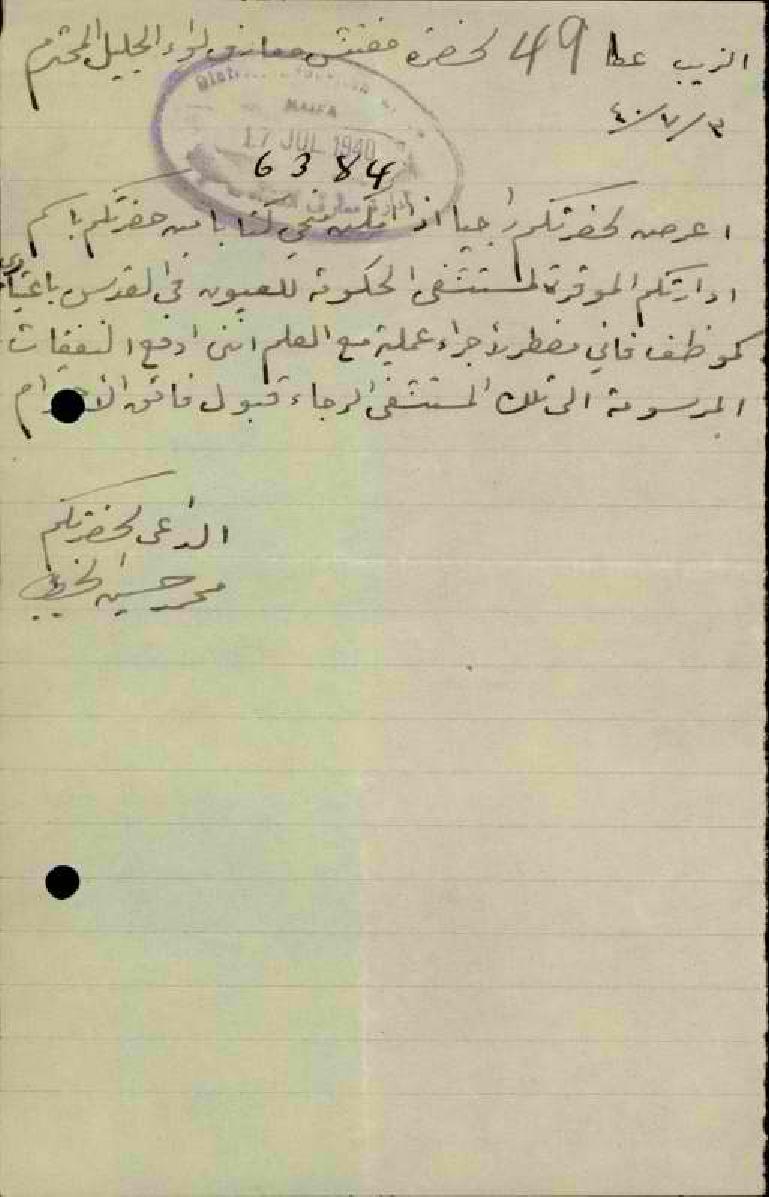 الزيب عكا 49 لحضرة مفتش معارف لواء الجليل المحترم
٤٠/٧/٣
HAIFA
17 JUL 1940
6384
اعرض لحضرتكم راجيا اذا امكن منحي كتابا من حضرتكم باسم
ادارتكم الموقرة لمستشفى الحكومة للعيون في القدس باعتباري
كموظف فاني مضطر لأجراء عملية مع العلم انني ادفع النفقات
المرسومة الى تلك المستشفى الرجاء قبول فائق الأحترام
الداعي لحضرتكم
محمد حسين الخطيب